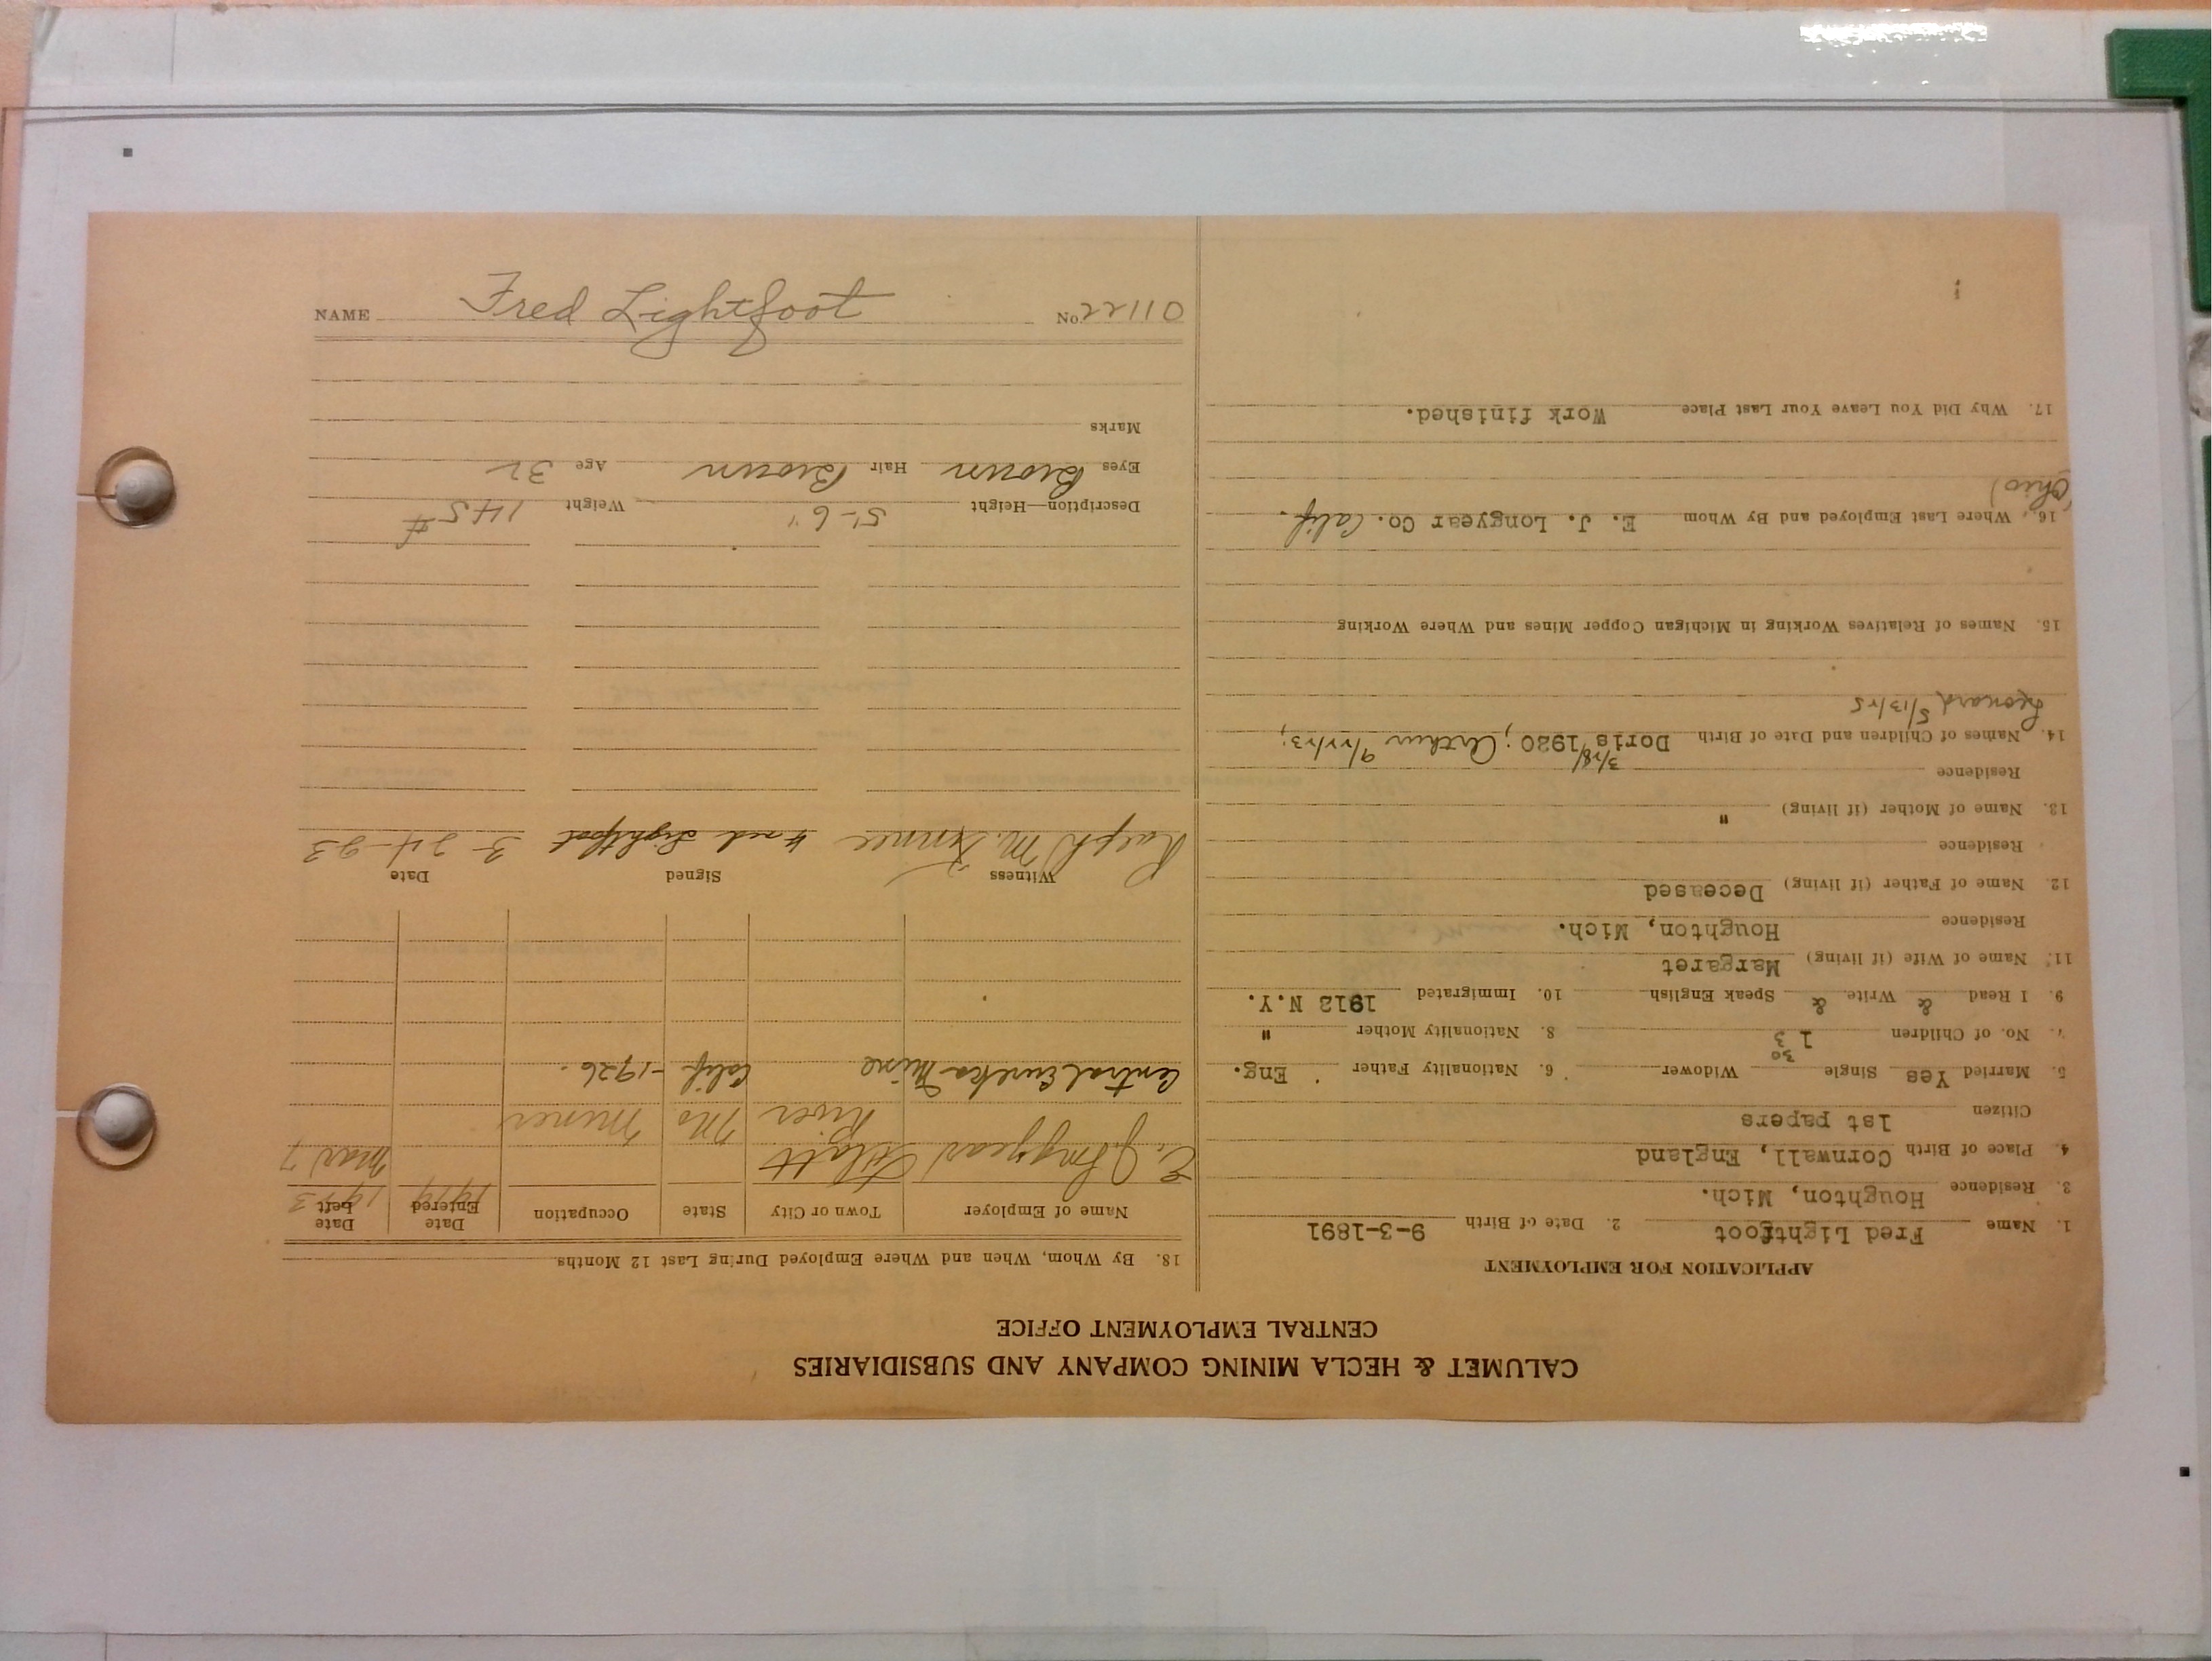 CALUMET & HECLA MINING COMPANY AND SUBSIDIARIES
CENTRAL EMPLOYMENT OFFICE
APPLICATION FOR EMPLOYMENT
1. Name Fred Lightfoot 2. Date of Birth 9-3-1891
3. Residence Houghton, Mich.
4. Place of Birth Cornwall, England
Citizen 1st papers
5. Married Yes Single Widower 6. Nationality Father Eng.
7. No. of Children 1 3 30 8. Nationality Mother "
9. I Read & Write & Speak English 10. Immigrated 1912 N.Y.
11. Name of Wife (if living) Margaret
Residence Houghton, Mich.
12. Name of Father (if living) Deceased
Residence
13. Name of Mother (if living) "
Residence
14. Names of Children and Date of Birth Doris 3/28/1920; Arthur 9/22/23;
Leonard 5/13/25
15. Names of Relatives Working in Michigan Copper Mines and Where Working
16. Where Last Employed and By Whom E. J. Longyear Co. Calif.
17. Why Did You Leave Your Last Place Work finished.
18. By Whom, When and Where Employed During Last 12 Months
Name of Employer Town or City State Occupation Date Entered Date Left
E. J. Longyear Flatt River Mo. Miner 1919 1923 Mar 7
Central Eureka Mine Calif - 1926.
Witness Signed Date
Ralph M. Fred Lightfoot 3-24-23
Description—Height 5'-6" Weight 145#
Eyes Brown Hair Brown Age 32
Marks
NAME Fred Lightfoot No. 01122